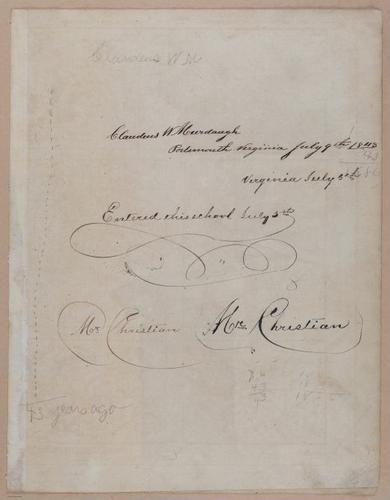 Claudens W M
Claudens W Murdaugh
Portsmouth Virginia July 9th 1843
Virginia July 5th
Entered this school July 5th
Mr Christian Mrs Christian
43
43 years ago